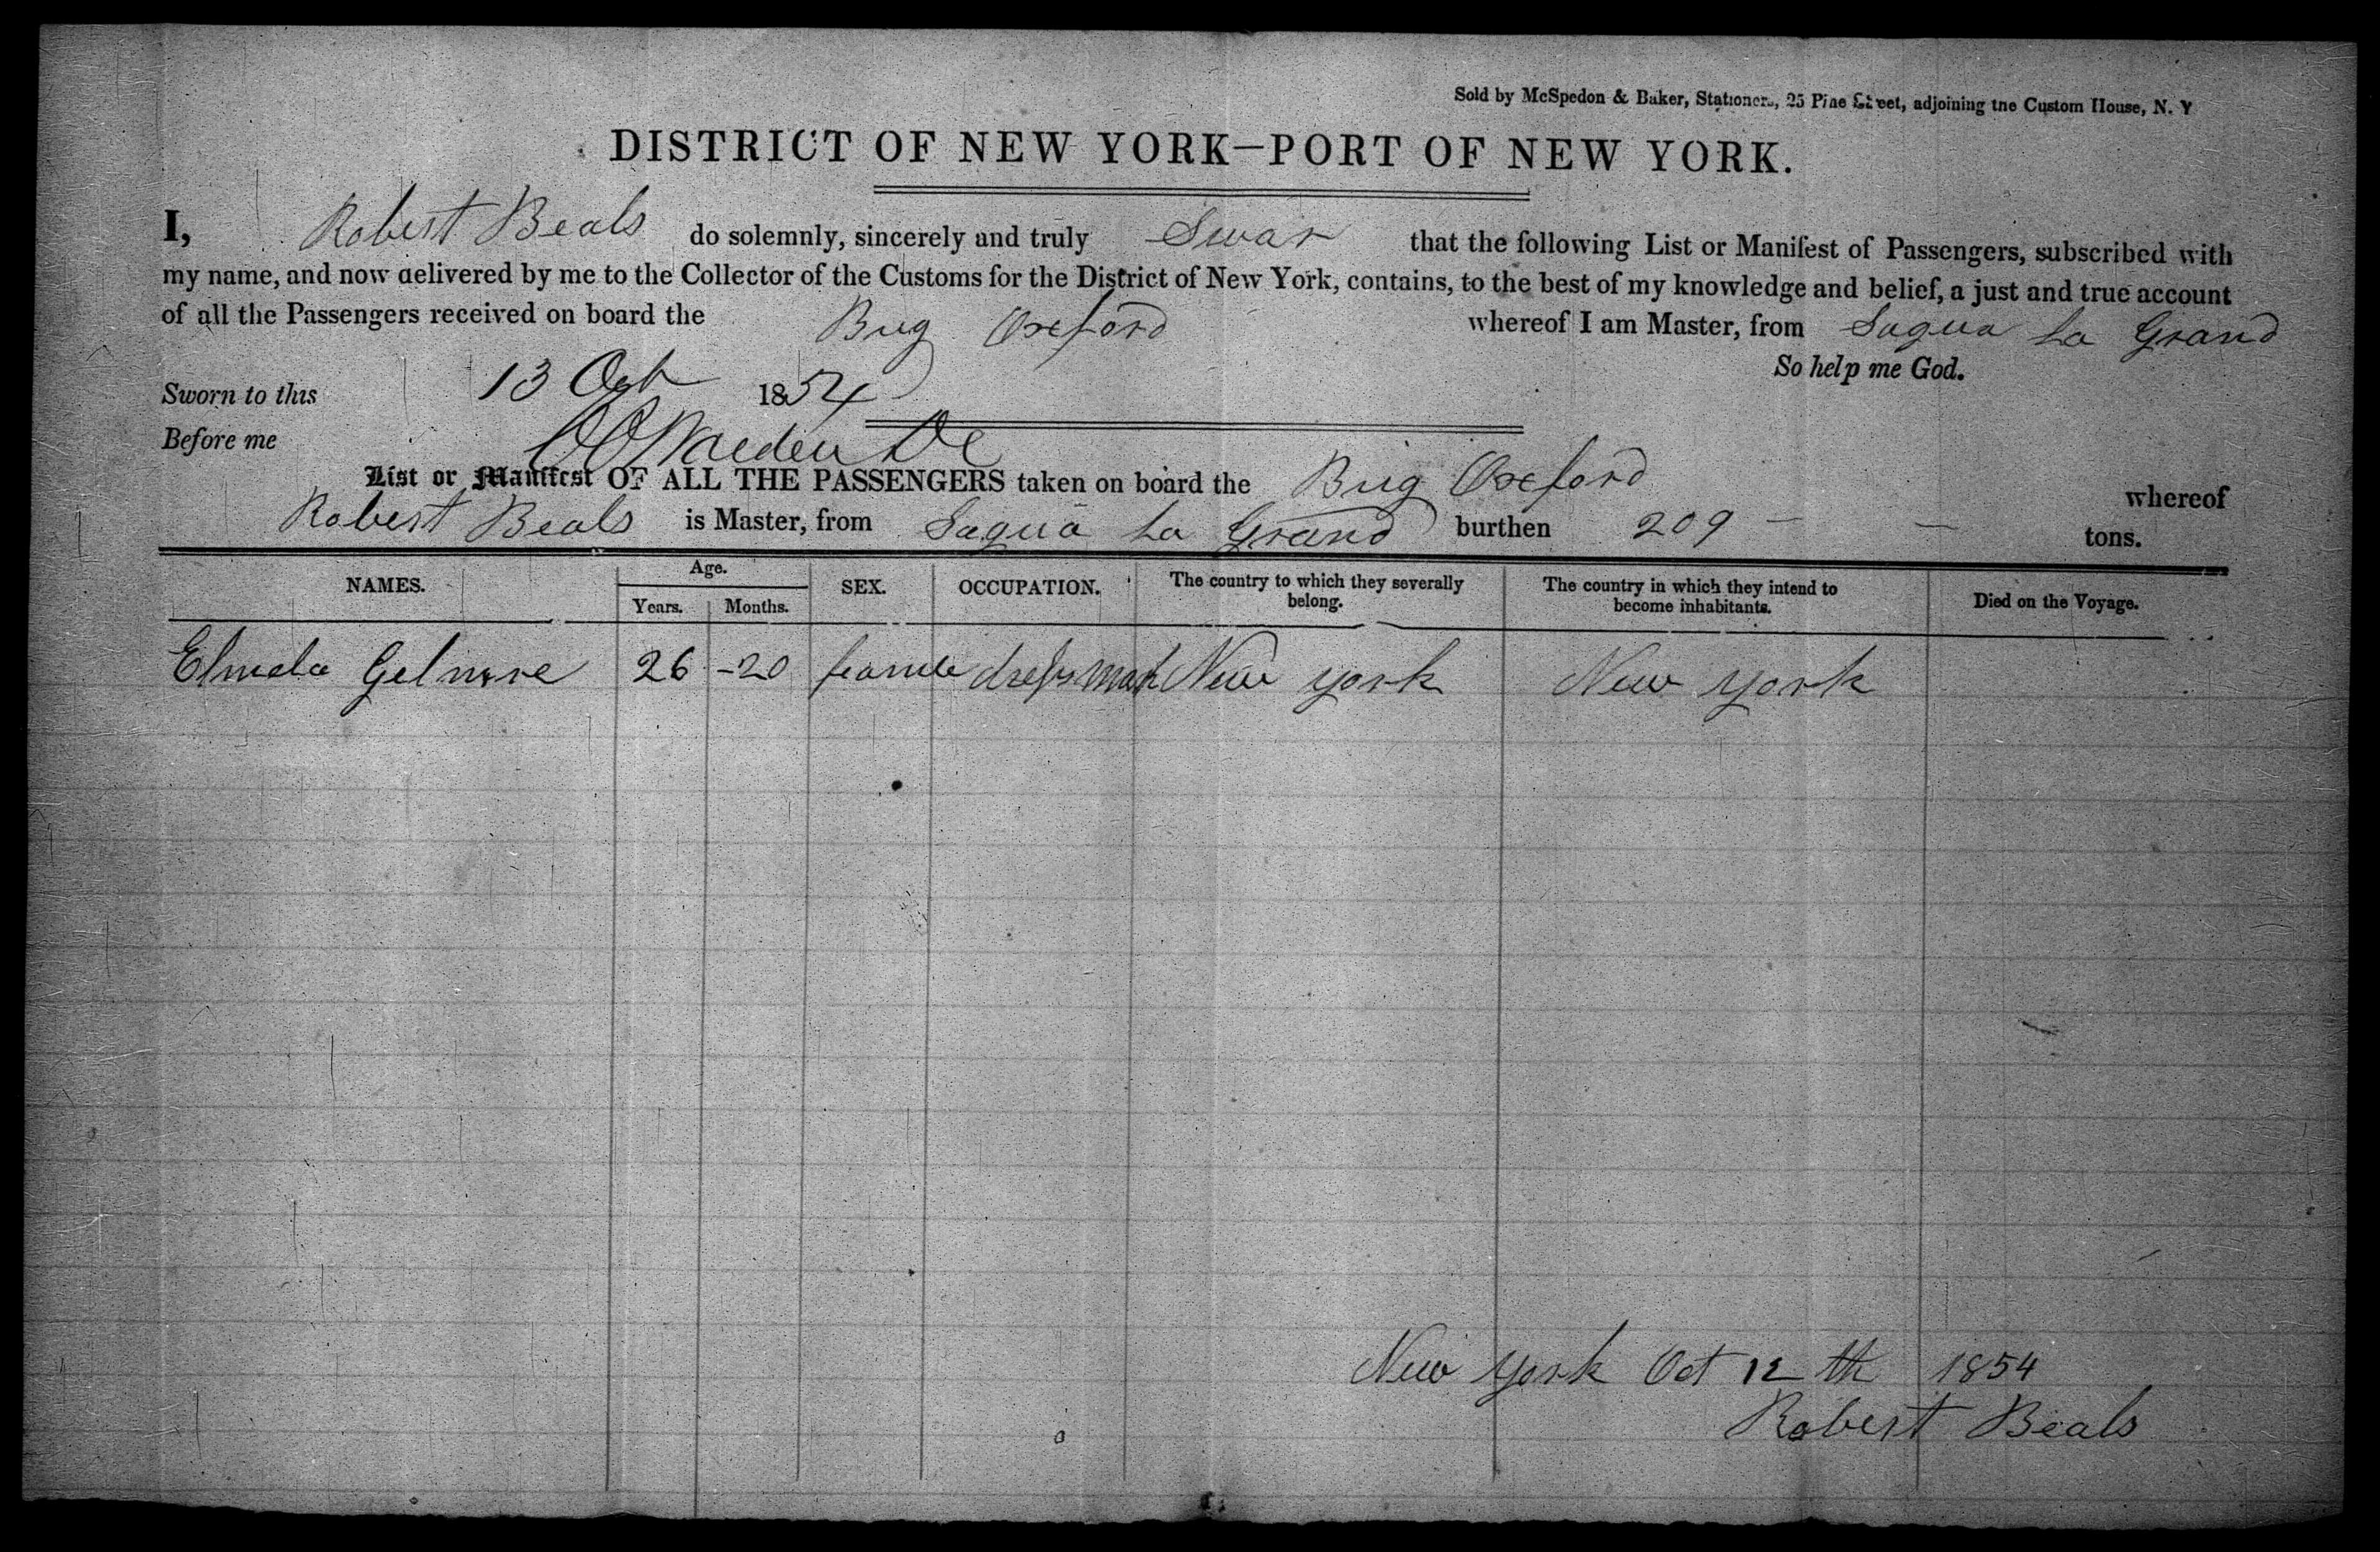 Sold by McSpedon & Baker, Stationers, 25 Pine Street, adjoining the Custom House, N. Y
DISTRICT OF NEW YORK—PORT OF NEW YORK.
I, Robert Beals do solemnly, sincerely and truly Swar that the following List or Manifest of Passengers, subscribed with
my name, and now delivered by me to the Collector of the Customs for the District of New York, contains, to the best of my knowledge and belief, a just and true account
of all the Passengers received on board the Brig Oxeford whereof I am Master, from Sagua La Grand
So help me God.
Sworn to this 13 Oct 1854
Before me
List or Manifest OF ALL THE PASSENGERS taken on board the Brig Oxeford whereof
Robert Beals is Master, from Sagua La Grand burthen 209 — — tons.
NAMES. Age. Years. Months. SEX. OCCUPATION. The country to which they severally belong. The country in which they intend to become inhabitants. Died on the Voyage.
Gelmore 26 -20 dressmak New york New york
New york Oct 12 th 1854
Robert Beals